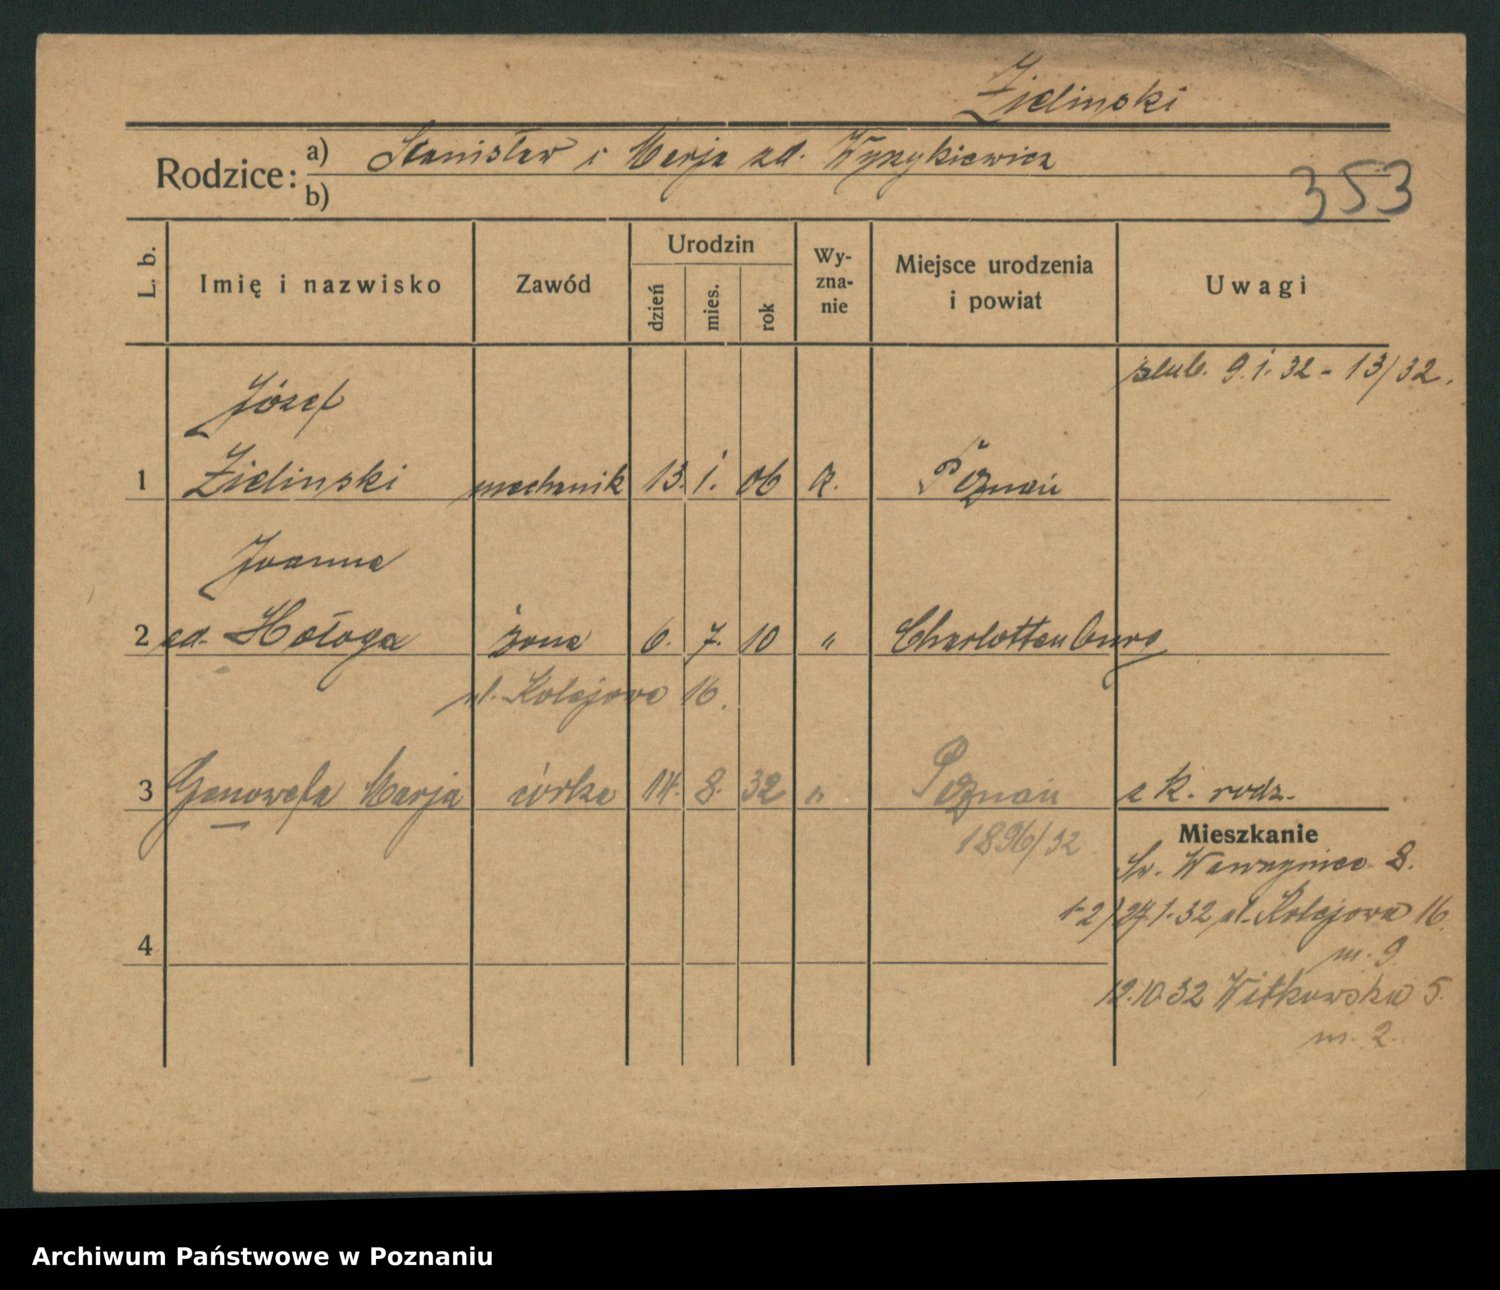 Zieliński
Rodzice:
a) Stanisław i Marja zd.
b)
353
L. b.
Imię i nazwisko
Zawód
Urodzin
dzień
mies.
rok
Wy-
zna-
nie
Miejsce urodzenia
i powiat
Uwagi
ślub. 9.1.32 - 13/32.
Józef
1 Zieliński mechanik 13. 1. 06 R. Poznań
Joanna
2 zd. Hołoga żona 6. 7. 10 " Charlottenburg
ul. Kolejowa 16.
3 Genowefa Marja córka 14. 8. 32 " Poznań z k. rodz.
1896/32
Mieszkanie
Św. Wawrzyńca 8.
1-2) 27.1.32 ul. Kolejowa 16
m. 9
4
12.10.32 Witkowska 5.
m. 2.
Archiwum Państwowe w Poznaniu